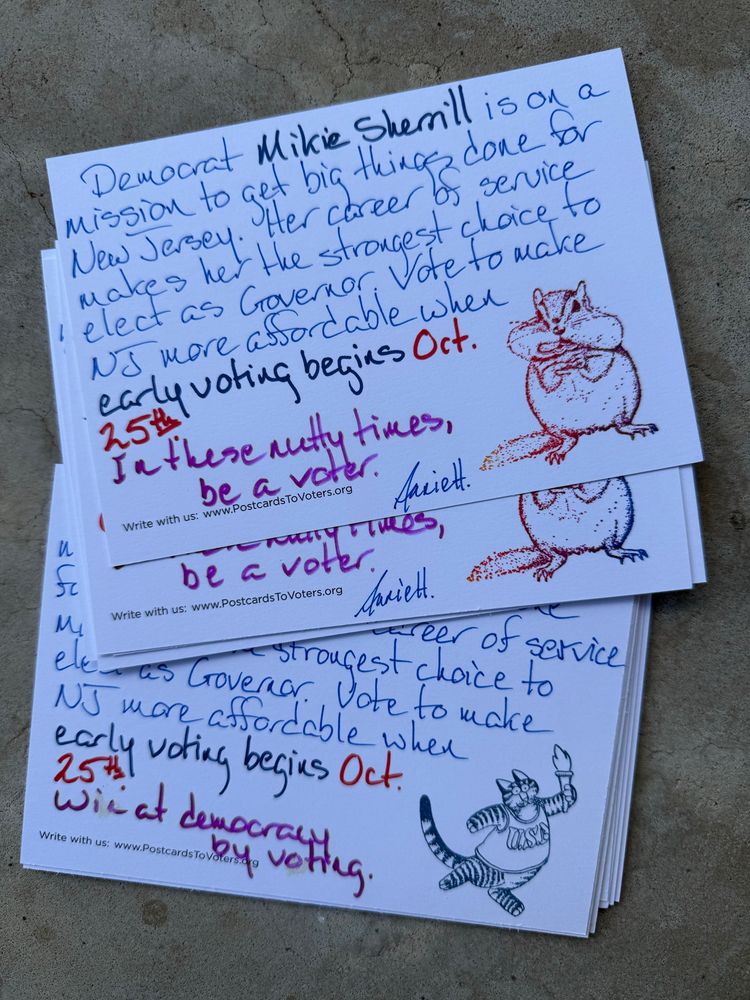 Democrat Mikie Sherrill is on a
mission to get big things done for
New Jersey. Her career of service
makes her the strongest choice to
elect as Governor. Vote to make
NJ more affordable when
early voting begins Oct.
25th
In these nutty times,
be a voter.
Write with us: www.PostcardsToVoters.org
nutty times,
be a voter.
Write with us: www.PostcardsToVoters.org
career of service
strongest choice to
as Governor. Vote to make
NJ more affordable when
early voting begins Oct.
25th
Win at democracy
by voting.
Write with us: www.PostcardsToVoters.org
USA